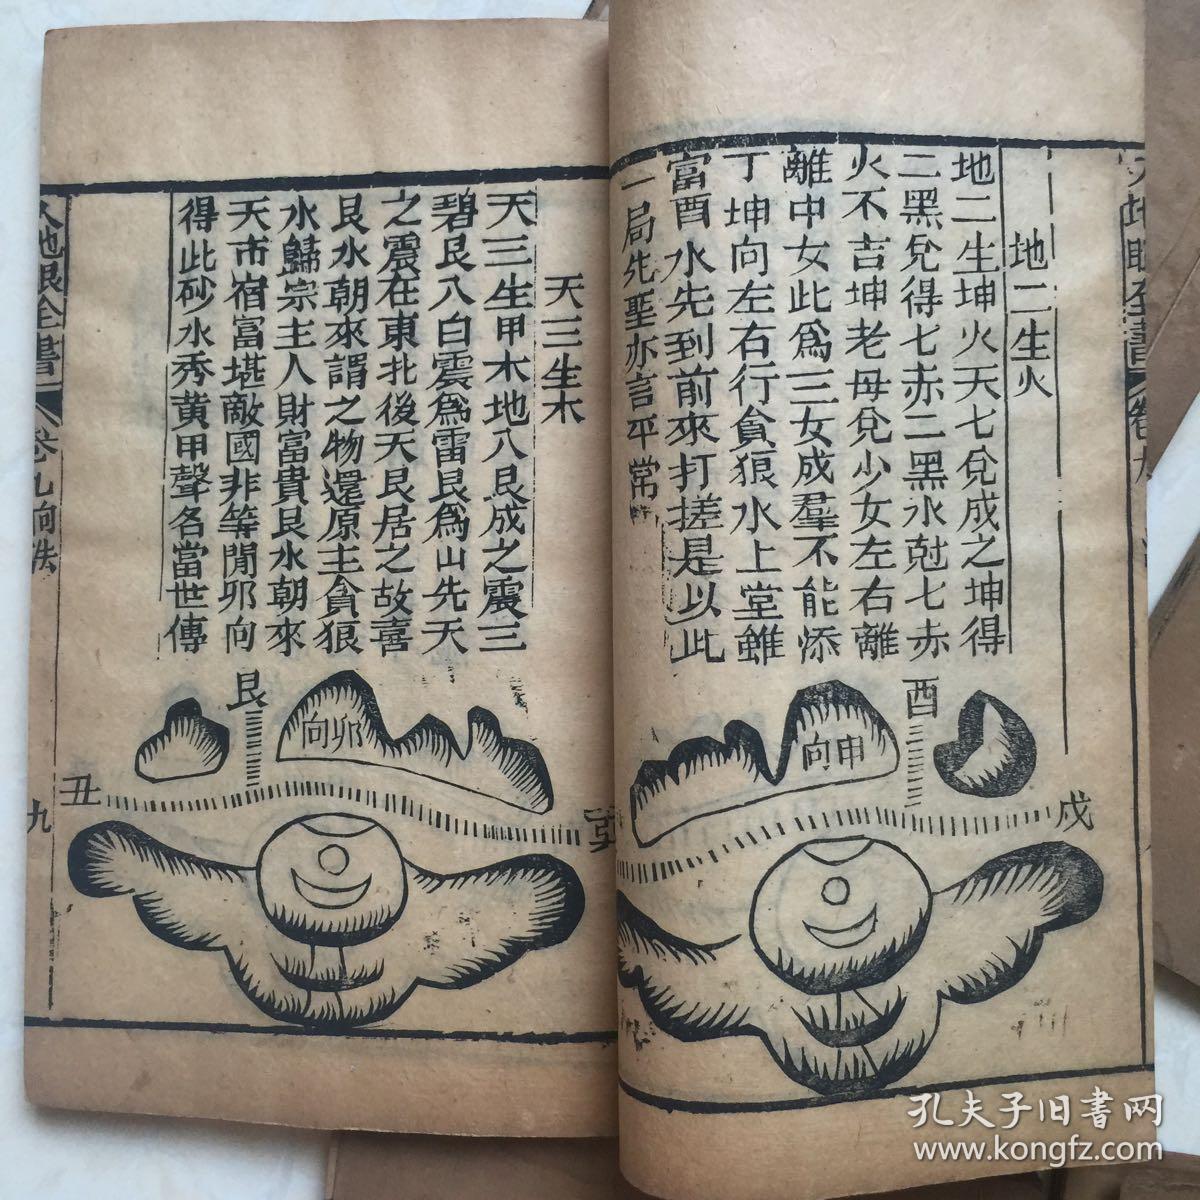 地二生火
地二生坤火天七兌成之坤得
二黑兌得七赤二黑水尅七赤
火不吉坤老母兌少女左右離
離中女此爲三女成羣不能添
丁坤向左右行貪狼水上堂雖
富酉水先到前來打搓是以此
一局先聖亦言平常
酉
申向
戌
天三生木
天三生甲木地八艮成之震三
碧艮八白震爲雷艮爲山先天
之震在東北後天艮居之故喜
艮水朝來謂之物還原主貪狼
水歸宗主人財富貴艮水朝來
天市宿富堪敵國非等閒夘向
得此砂水秀黄甲聲名當世傳
艮
夘向
丑
寅
地眼全書 卷九向法
九
孔夫子旧书网
www.kongfz.com